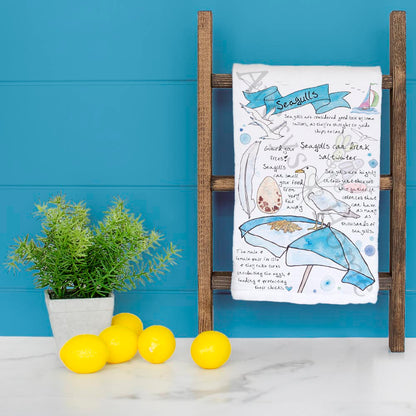 Seagulls
Seagulls are considered good luck by some
sailors, as they're thought to guide
ships to land
Guard your
fries!
Seagulls
can smell
your food
from
very far
away
Seagulls can drink
saltwater
Seagulls are highly
social
colonies
that
can have
as many
as
thousands of
seagulls.
The male &
female pair for life
& they take turns
incubating the eggs, &
feeding & protecting
their chicks